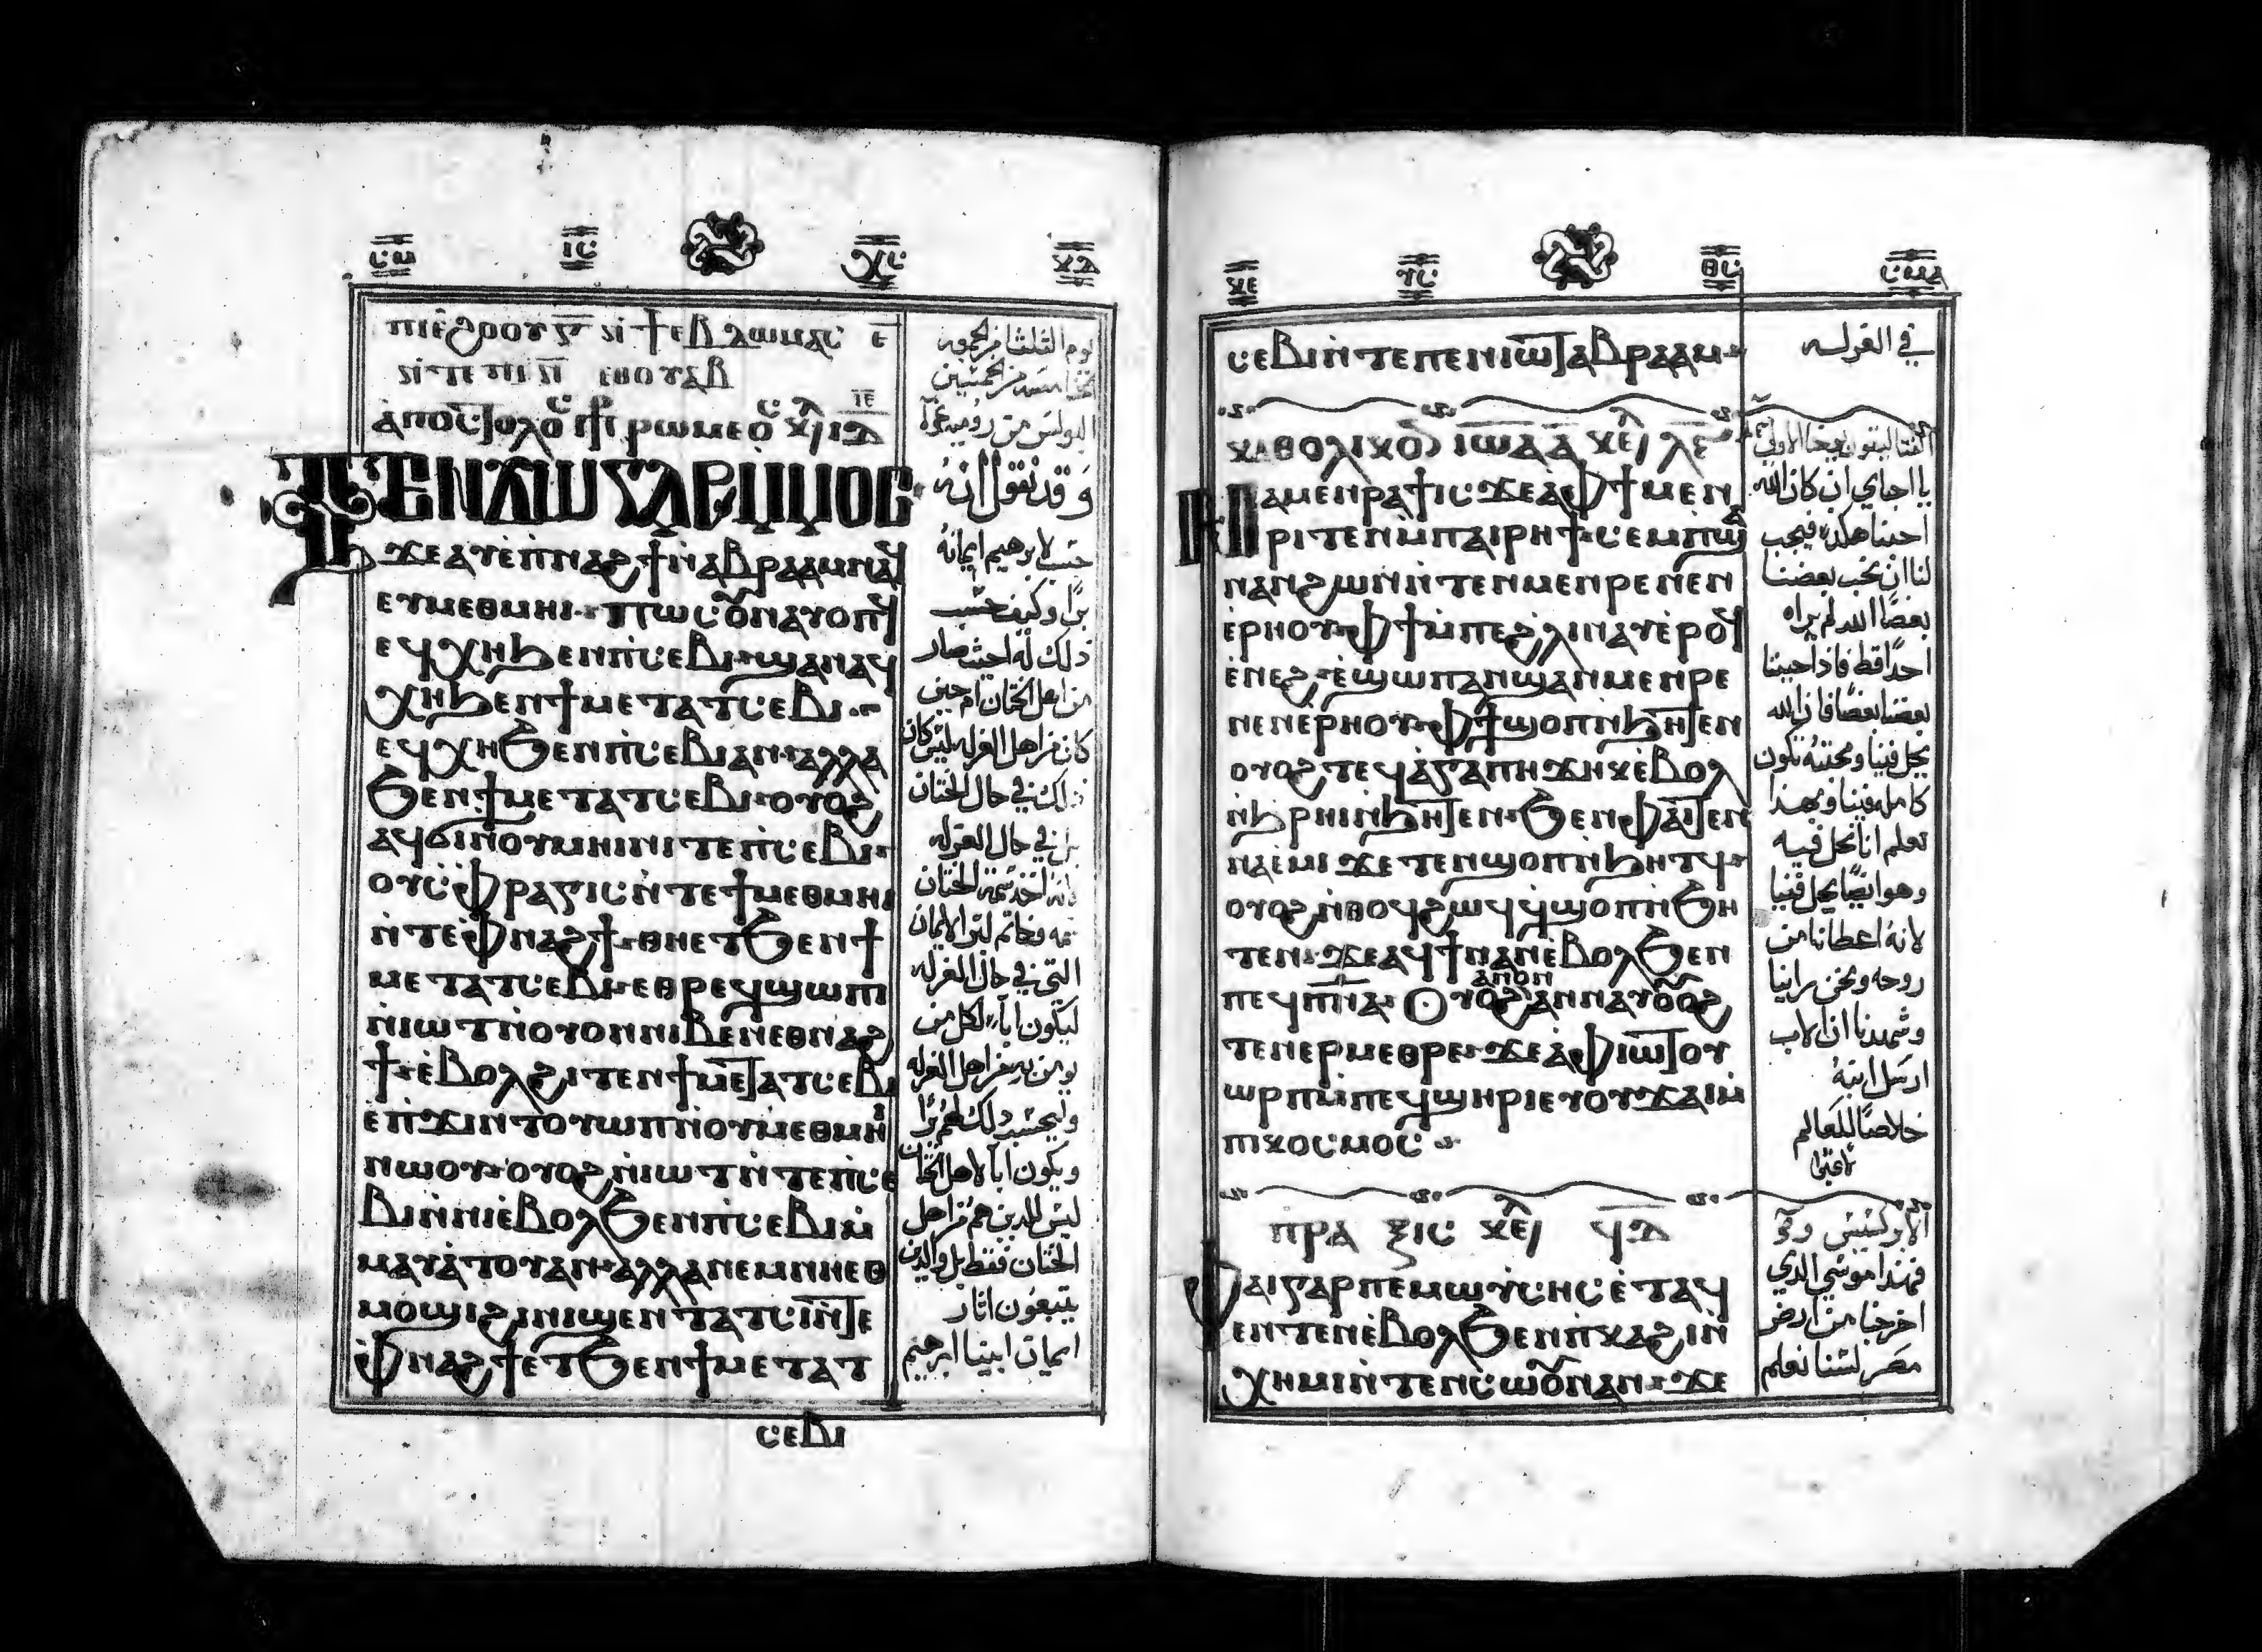 ⲓⲥ
ⲭⲥ
ⲡⲓⲉϩⲟⲟⲩ ⲅ̅ ⲛ̀ϯⲉⲃⲇⲱⲙⲁⲥ ⲉ̅
ⲛ̀ⲧⲉ ⲡⲓⲛ̅ ⲉⲑⲟⲩⲁⲃ
ⲁⲡⲟⲥⲧⲟⲗⲟⲥ ⲣⲱⲙⲉⲟⲥ
ⲧⲉⲛϫⲱ ⲅⲁⲣ ⲙ̀ⲙⲟⲥ
ϫⲉ ⲁⲩⲉⲡ ⲫⲛⲁϩϯ ⲛ̀ⲁⲃⲣⲁⲁⲙ ⲛⲁϥ
ⲉⲩⲙⲉⲑⲙⲏⲓ · ⲡⲱⲥ ⲟⲩⲛ ⲁⲩⲟⲡϥ
ⲉϥⲭⲏ ϧⲉⲛ ⲡⲥⲉⲃⲓ · ϣⲁⲛ ⲁϥ
ⲭⲏ ϧⲉⲛ ϯⲙⲉⲧⲁⲧⲥⲉⲃⲓ ·
ⲉϥⲭⲏ ϧⲉⲛ ⲡⲥⲉⲃⲓ ⲁⲛ · ⲁⲗⲗⲁ
ϧⲉⲛ ϯⲙⲉⲧⲁⲧⲥⲉⲃⲓ · ⲟⲩⲟϩ
ⲁϥϭⲓ ⲛ̀ⲟⲩⲙⲏⲓⲛⲓ ⲛ̀ⲧⲉ ⲡⲥⲉⲃⲓ ·
ⲟⲩⲥⲫⲣⲁⲅⲓⲥ ⲛ̀ⲧⲉ ϯⲙⲉⲑⲙⲏⲓ
ⲛ̀ⲧⲉ ⲫⲛⲁϩϯ · ⲑⲏ ⲉⲧϧⲉⲛ ϯ
ⲙⲉⲧⲁⲧⲥⲉⲃⲓ · ⲉⲑⲣⲉϥϣⲱⲡⲓ
ⲛ̀ⲓⲱⲧ ⲛ̀ⲟⲩⲟⲛ ⲛⲓⲃⲉⲛ ⲉⲑⲛⲁϩ
ϯ · ⲉ̀ⲃⲟⲗ ϩⲓⲧⲉⲛ ϯⲙⲉⲧⲁⲧⲥⲉⲃⲓ
ⲉ̀ⲡϫⲓⲛⲧⲟⲩⲱⲡ ⲛ̀ⲟⲩⲙⲉⲑⲙⲏⲓ
ⲛⲱⲟⲩ · ⲟⲩⲟϩ ⲛ̀ⲓⲱⲧ ⲛ̀ⲧⲉ ⲡⲥⲉ
ⲃⲓ ⲛ̀ⲛⲓⲉ̀ⲃⲟⲗ ϧⲉⲛ ⲡⲥⲉⲃⲓ ⲙ̀
ⲙⲁⲩⲁⲧⲟⲩ ⲁⲛ · ⲁⲗⲗⲁ ⲛⲉⲙ ⲛⲏ ⲉⲑ
ⲙⲟϣⲓ ϩⲓ ⲛⲓϣⲉⲛⲧⲁⲧⲥⲓ ⲛ̀ⲧⲉ
ⲫⲛⲁϩϯ ⲉⲧϧⲉⲛ ϯⲙⲉⲧⲁⲧ
ⲥⲉⲃⲓ
يوم الثلثا من الجمعه
الخامسه من الخمسين
وقد نقول انه
حسب لابرهيم ايمانه
برًا وكيف حسب
ذلك له احيث صار
من اهل الختان ام حين
كان من اهل الغرله ليس كان
ذلك في حال الختان
بل في حال الغرله
لانه اخذ سمة الختان
التي في حال الغرله
ليكون ابًا لكل من
يومن به من اهل الغرله
وليحسب ذلك لهم برًا
ويكون ابًا لاهل الختان
ليس للذين هم من اهل
الختان فقط بل والذين
يتبعون اثار
ايمان ابينا ابرهيم
ⲩⲥ
ⲑⲥ
ⲥⲉⲃⲓ ⲛ̀ⲧⲉ ⲡⲉⲛⲓⲱⲧ ⲁⲃⲣⲁⲁⲙ ·
ⲕⲁⲑⲟⲗⲓⲕⲟⲛ ⲓⲱⲁ ⲁ̅ ⲕⲉ ⲗⲉ
ⲛⲁⲙⲉⲛⲣⲁϯ ⲓⲥϫⲉ ⲁ̀ ⲫϯ ⲙⲉⲛ
ⲣⲓⲧⲉⲛ ⲙ̀ⲡⲁⲓⲣⲏϯ · ⲥⲉⲙⲡϣⲁ
ⲛⲁⲛ ϩⲱⲛ ⲛ̀ⲧⲉⲛⲙⲉⲛⲣⲉ ⲛⲉⲛ
ⲉⲣⲏⲟⲩ · ⲫϯ ⲙ̀ⲡⲉ ϩⲗⲓ ⲛⲁⲩ ⲉ̀ⲣⲟϥ
ⲉ̀ⲛⲉϩ · ⲉ̀ϣⲱⲡ ⲁⲛϣⲁⲛⲙⲉⲛⲣⲉ
ⲛⲉⲛⲉ̀ⲣⲏⲟⲩ · ⲫϯ ϣⲟⲡ ⲛ̀ϧⲏⲧⲉⲛ
ⲟⲩⲟϩ ⲧⲉϥⲁ̀ⲅⲁⲡⲏ ϫⲏⲕ ⲉ̀ⲃⲟⲗ
ⲛ̀ϧⲣⲏⲓ ⲛ̀ϧⲏⲧⲉⲛ · ϧⲉⲛ ⲫⲁⲓ ⲧⲉⲛ
ⲛⲁⲉ̀ⲙⲓ ϫⲉ ⲧⲉⲛϣⲟⲡ ⲛ̀ϧⲏⲧϥ ·
ⲟⲩⲟϩ ⲛ̀ⲑⲟϥ ϩⲱϥ ϥϣⲟⲡ ⲛ̀ϧⲏ
ⲧⲉⲛ · ϫⲉ ⲁϥϯ ⲛⲁⲛ ⲉ̀ⲃⲟⲗ ϧⲉⲛ
ⲁⲛⲟⲛ
ⲡⲉϥⲡⲛⲁ · ⲟⲩⲟϩ ⲁⲛⲛⲁⲩ ⲟⲩⲟϩ
ⲧⲉⲛⲉⲣⲙⲉⲑⲣⲉ · ϫⲉ ⲁ̀ ⲫⲓⲱⲧ ⲟⲩ
ⲱⲣⲡ ⲙ̀ⲡⲉϥϣⲏⲣⲓ ⲉⲩⲟⲩϫⲁⲓ ⲙ̀
ⲡⲕⲟⲥⲙⲟⲥ ·
ⲡⲣⲁⲝⲓⲥ ⲕⲉ
ⲫⲁⲓ ⲅⲁⲣ ⲡⲉ ⲙⲱⲩ̀ⲥⲏⲥ ⲉ̀ⲧⲁϥ
ⲉⲛⲧⲉⲛ ⲉ̀ⲃⲟⲗ ϧⲉⲛ ⲡⲕⲁϩⲓ ⲛ̀
ⲭⲏⲙⲓ ⲛ̀ⲧⲉⲛⲥⲱⲟⲩⲛ ⲁⲛ · ϫⲉ
في الغرله
يا احباي ان كان الله
احبنا هكذا فيجب
لنا ان نحب بعضنا
بعضًا الله لم يراه
احدًا قط فاذا احببنا
بعضنا بعضًا فان الله
يحل فينا ومحبته تكون
كامله فينا وبهذا
نعلم انا نحل فيه
وهو ايضًا يحل فينا
لانه اعطانا من
روحه ونحن راينا
وشهدنا ان الاب
ارسل ابنه
خلاصًا للعالم
الابركسيس
فهذا موسي الذي
اخرجنا من ارض
مصر لسنا نعلم